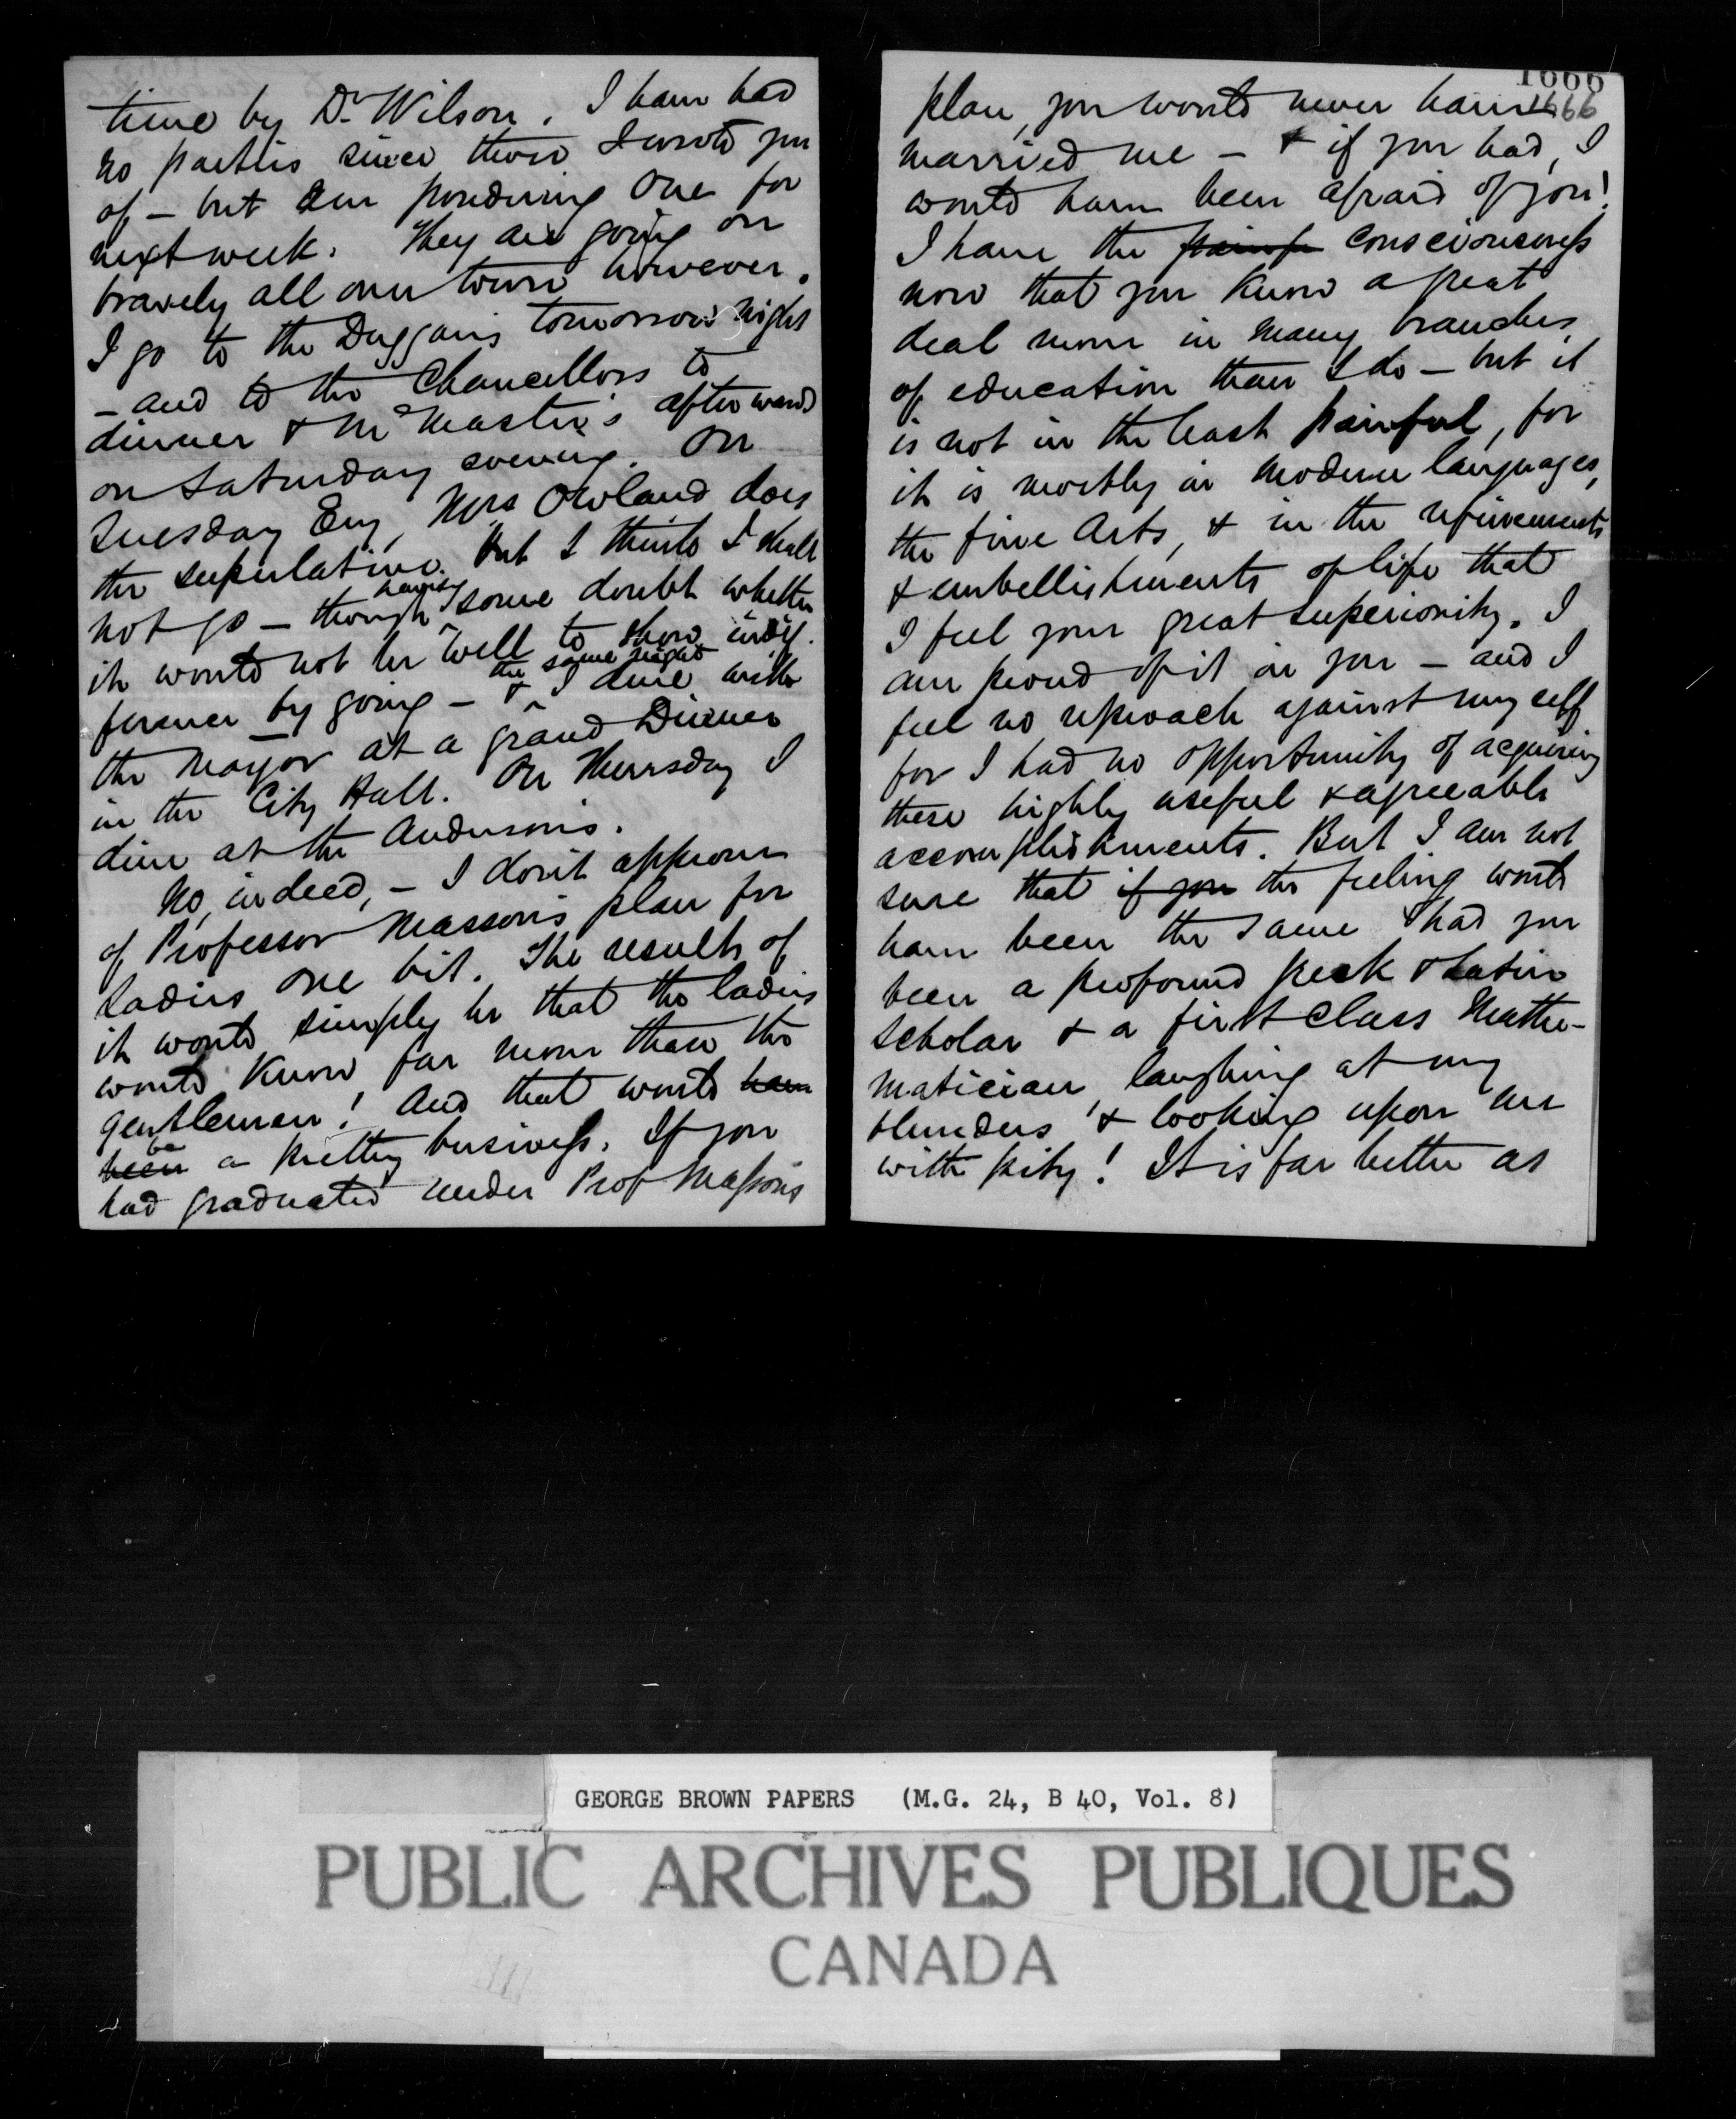 time by Dr Wilson. I have had
no parties since those I wrote you
of – but am pondering one for
next week. They are going on
bravely all over town however.
I go to the Duggans tomorrow night
– and to the Chancellors to
dinner & McMaster's afterwards
on Saturday evening. On
Tuesday Evg, Mrs Howland does
the superlative. But I think I shall
not go – though having some doubt whether
it would not be well to show indif-
ference by going – & the same night I dine with
the Mayor at a grand Dinner
in the City Hall. On Thursday I
dine at the Andersons.
No, indeed, – I don't approve
of Professor Masson's plan for
Ladies one bit. The results of
it would simply be that the ladies
would know far more than the
gentlemen! And that would have
been be a pretty business. If you
had graduated under Prof Masson's
1666
1666
plan, you would never have
married me – & if you had, I
would have been afraid of you!
I have the painfu consciousness
now that you know a great
deal more in many branches
of education than I do – but it
is not in the least painful, for
it is mostly in modern languages,
the fine arts, & in the refinements
& embellishments of life that
I feel your great superiority. I
am proud of it in you – and I
feel no reproach against myself
for I had no opportunity of acquiring
these highly useful & agreeable
accomplishments. But I am not
sure that if you the feeling would
have been the same had you
been a profound Greek & Latin
scholar & a first class Mathe-
matician, laughing at my
blunders & looking upon me
with pity! It is far better as
GEORGE BROWN PAPERS (M.G. 24, B 40, Vol. 8)
PUBLIC ARCHIVES PUBLIQUES
CANADA